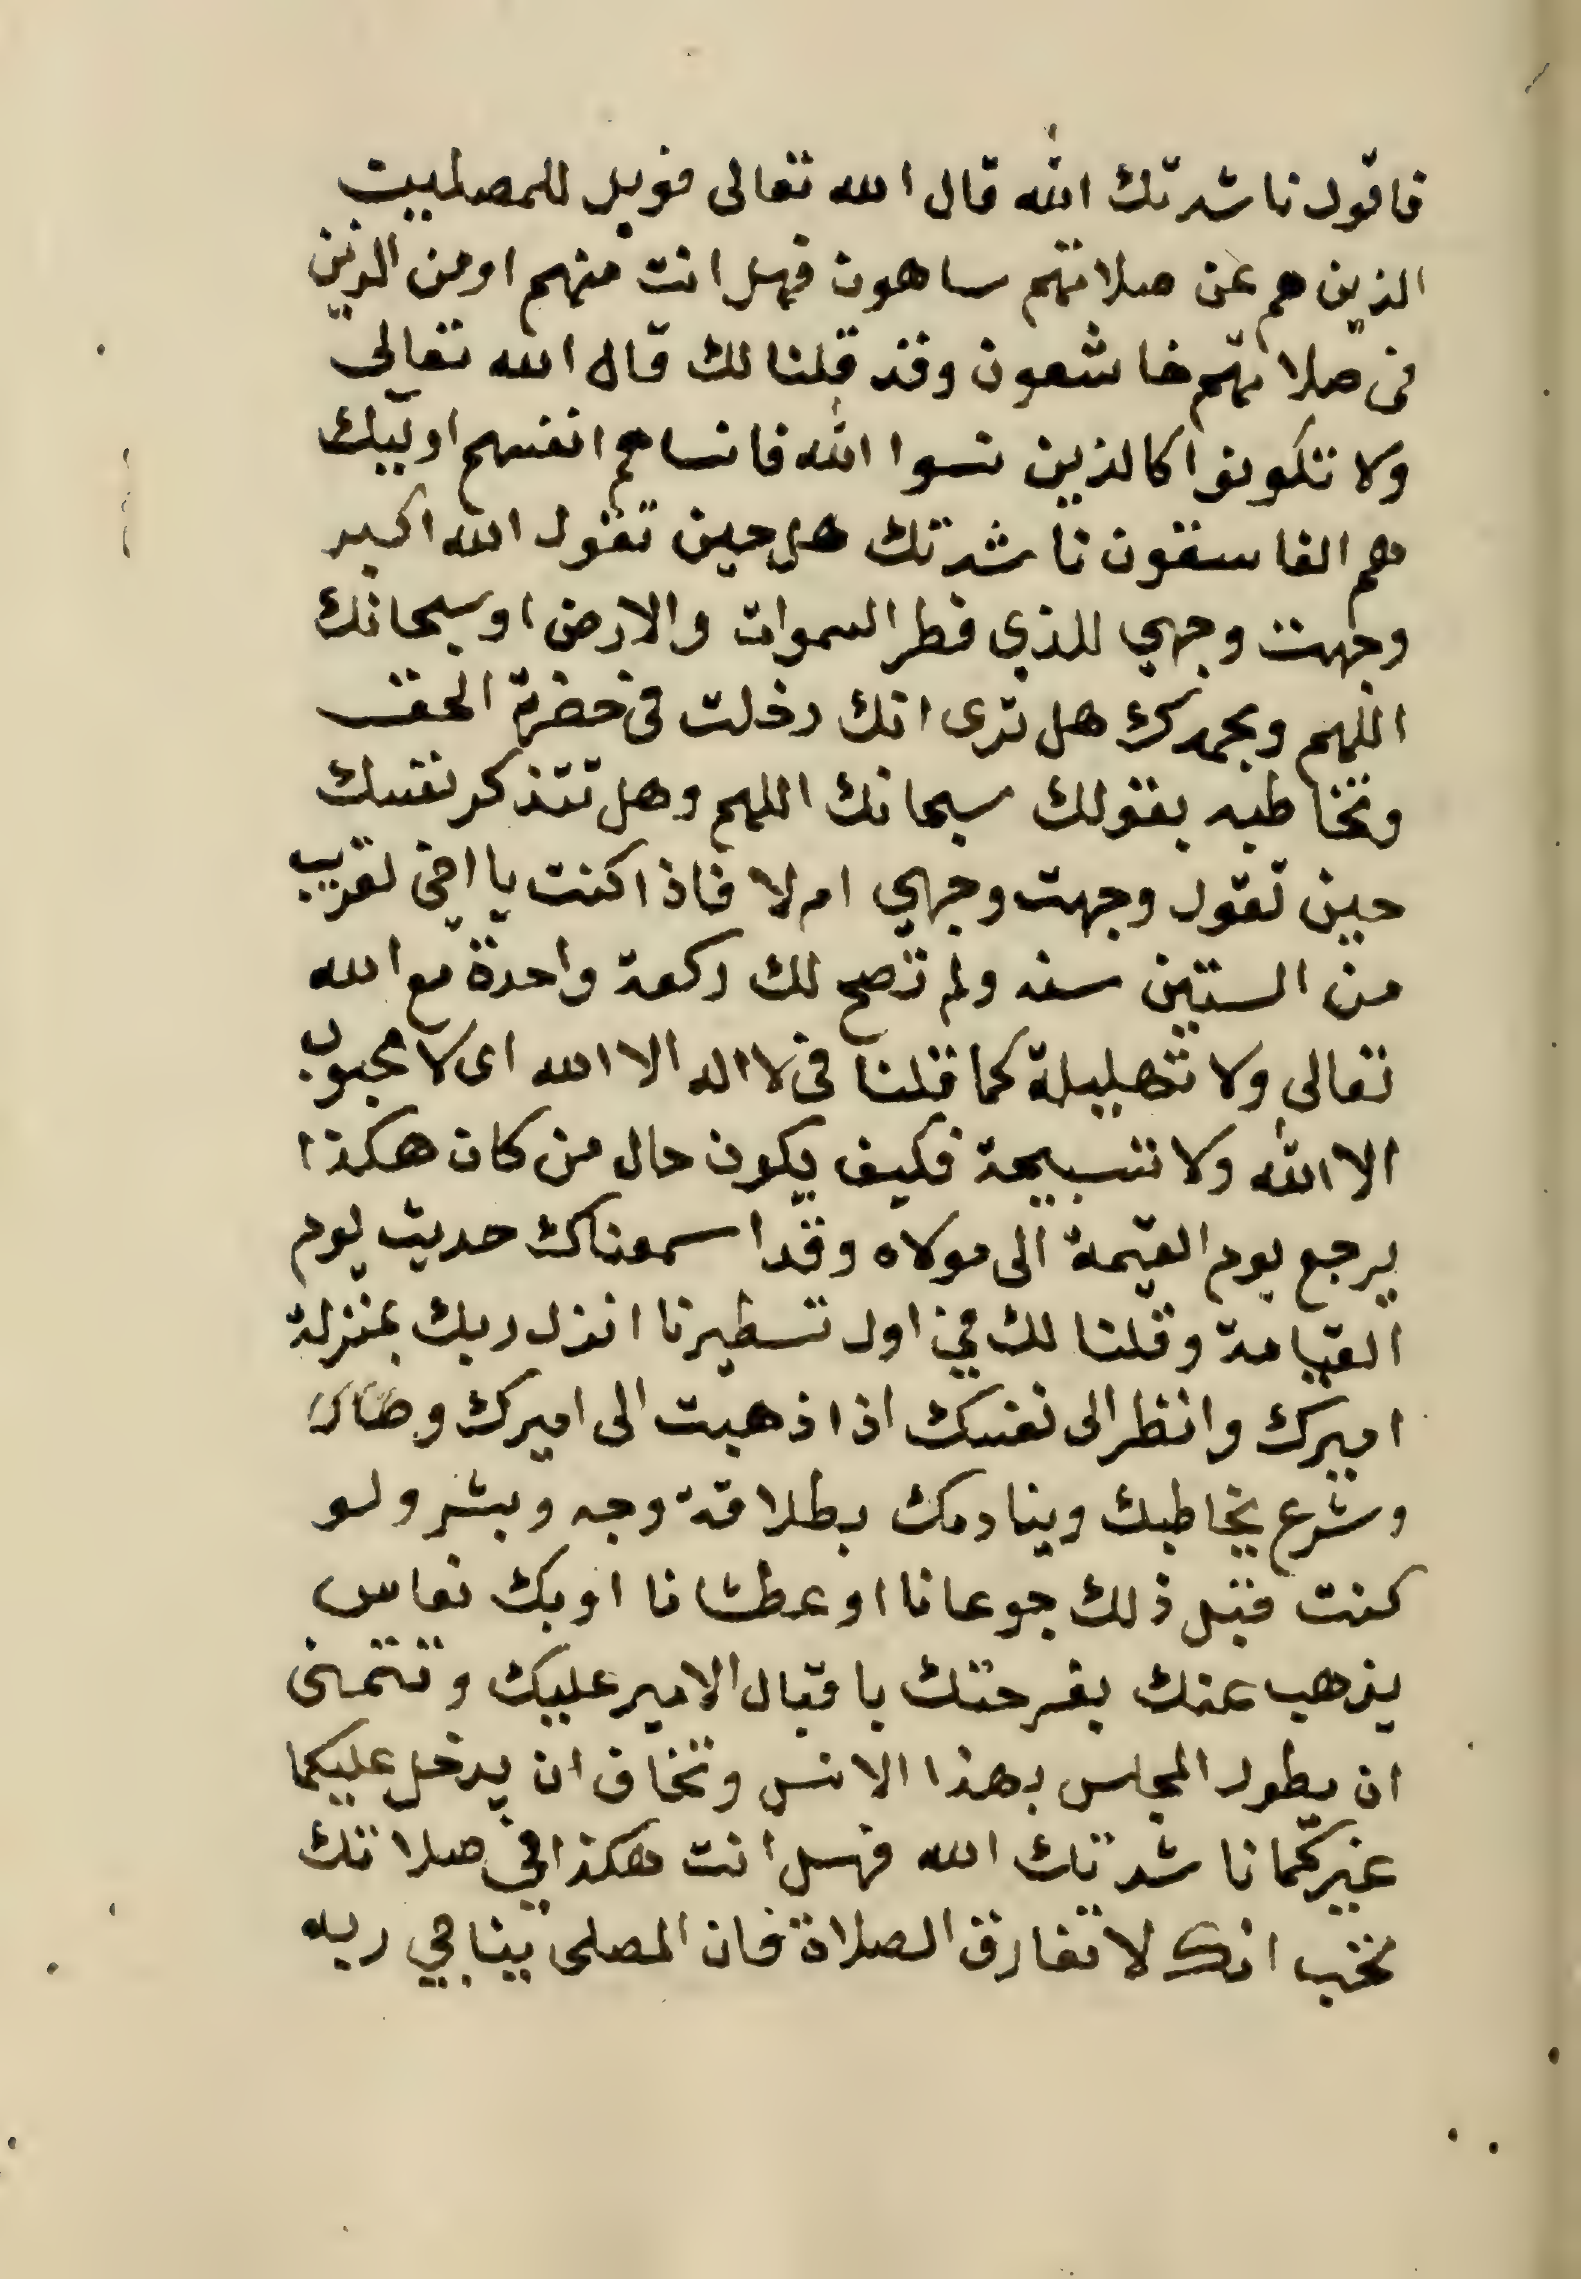 فاقول ناشدتك الله قال الله تعالى فويل للمصليين
الذين هم عن صلاتهم ساهون فهل انت منهم او من الذين
فى صلاتهم خاشعون وقد قلنا لك قال الله تعالى
ولا تكونوا كالذين نسوا الله فانساهم انفسهم اوليك
هم الفاسقون ناشدتك هل حين تقول الله اكبر
وجهت وجهي للذي فطر السموات والارض او سبحانك
اللهم وبحمدك هل ترى انك دخلت فى حضرة الحق
وتخاطبه بقولك سبحانك اللهم وهل تتذكر نفسك
حين تقول وجهت وجهي ام لا فاذا كنت يا اخي لقرب
من الستين سنه ولم تصح لك ركعة واحدة مع الله
تعالى ولا تهليلة كما قلنا فى لا اله الا الله اى لا محبوب
الا الله ولا تسبيحة فكيف يكون حال من كان هكذا
يرجع يوم القيمة الى مولاه وقد اسمعناك حديث يوم
القيامة وقلنا لك في اول تسطيرنا انزل ربك بمنزلة
اميرك وانظر الى نفسك اذا ذهبت الى اميرك
وشرع يخاطبك وينادمك بطلاقة وجه وبشر ولو
كنت قبل ذلك جوعانا او عطشانا او بك نعاس
يذهب عنك بفرحتك باقبال الامير عليك وتتمنى
ان يطول المجلس بهذا الانس وتخاف ان يدخل عليكما
غيركما ناشدتك الله فهل انت هكذا في صلاتك
تحب انك لا تفارق الصلاة فان المصلى يناجي ربه